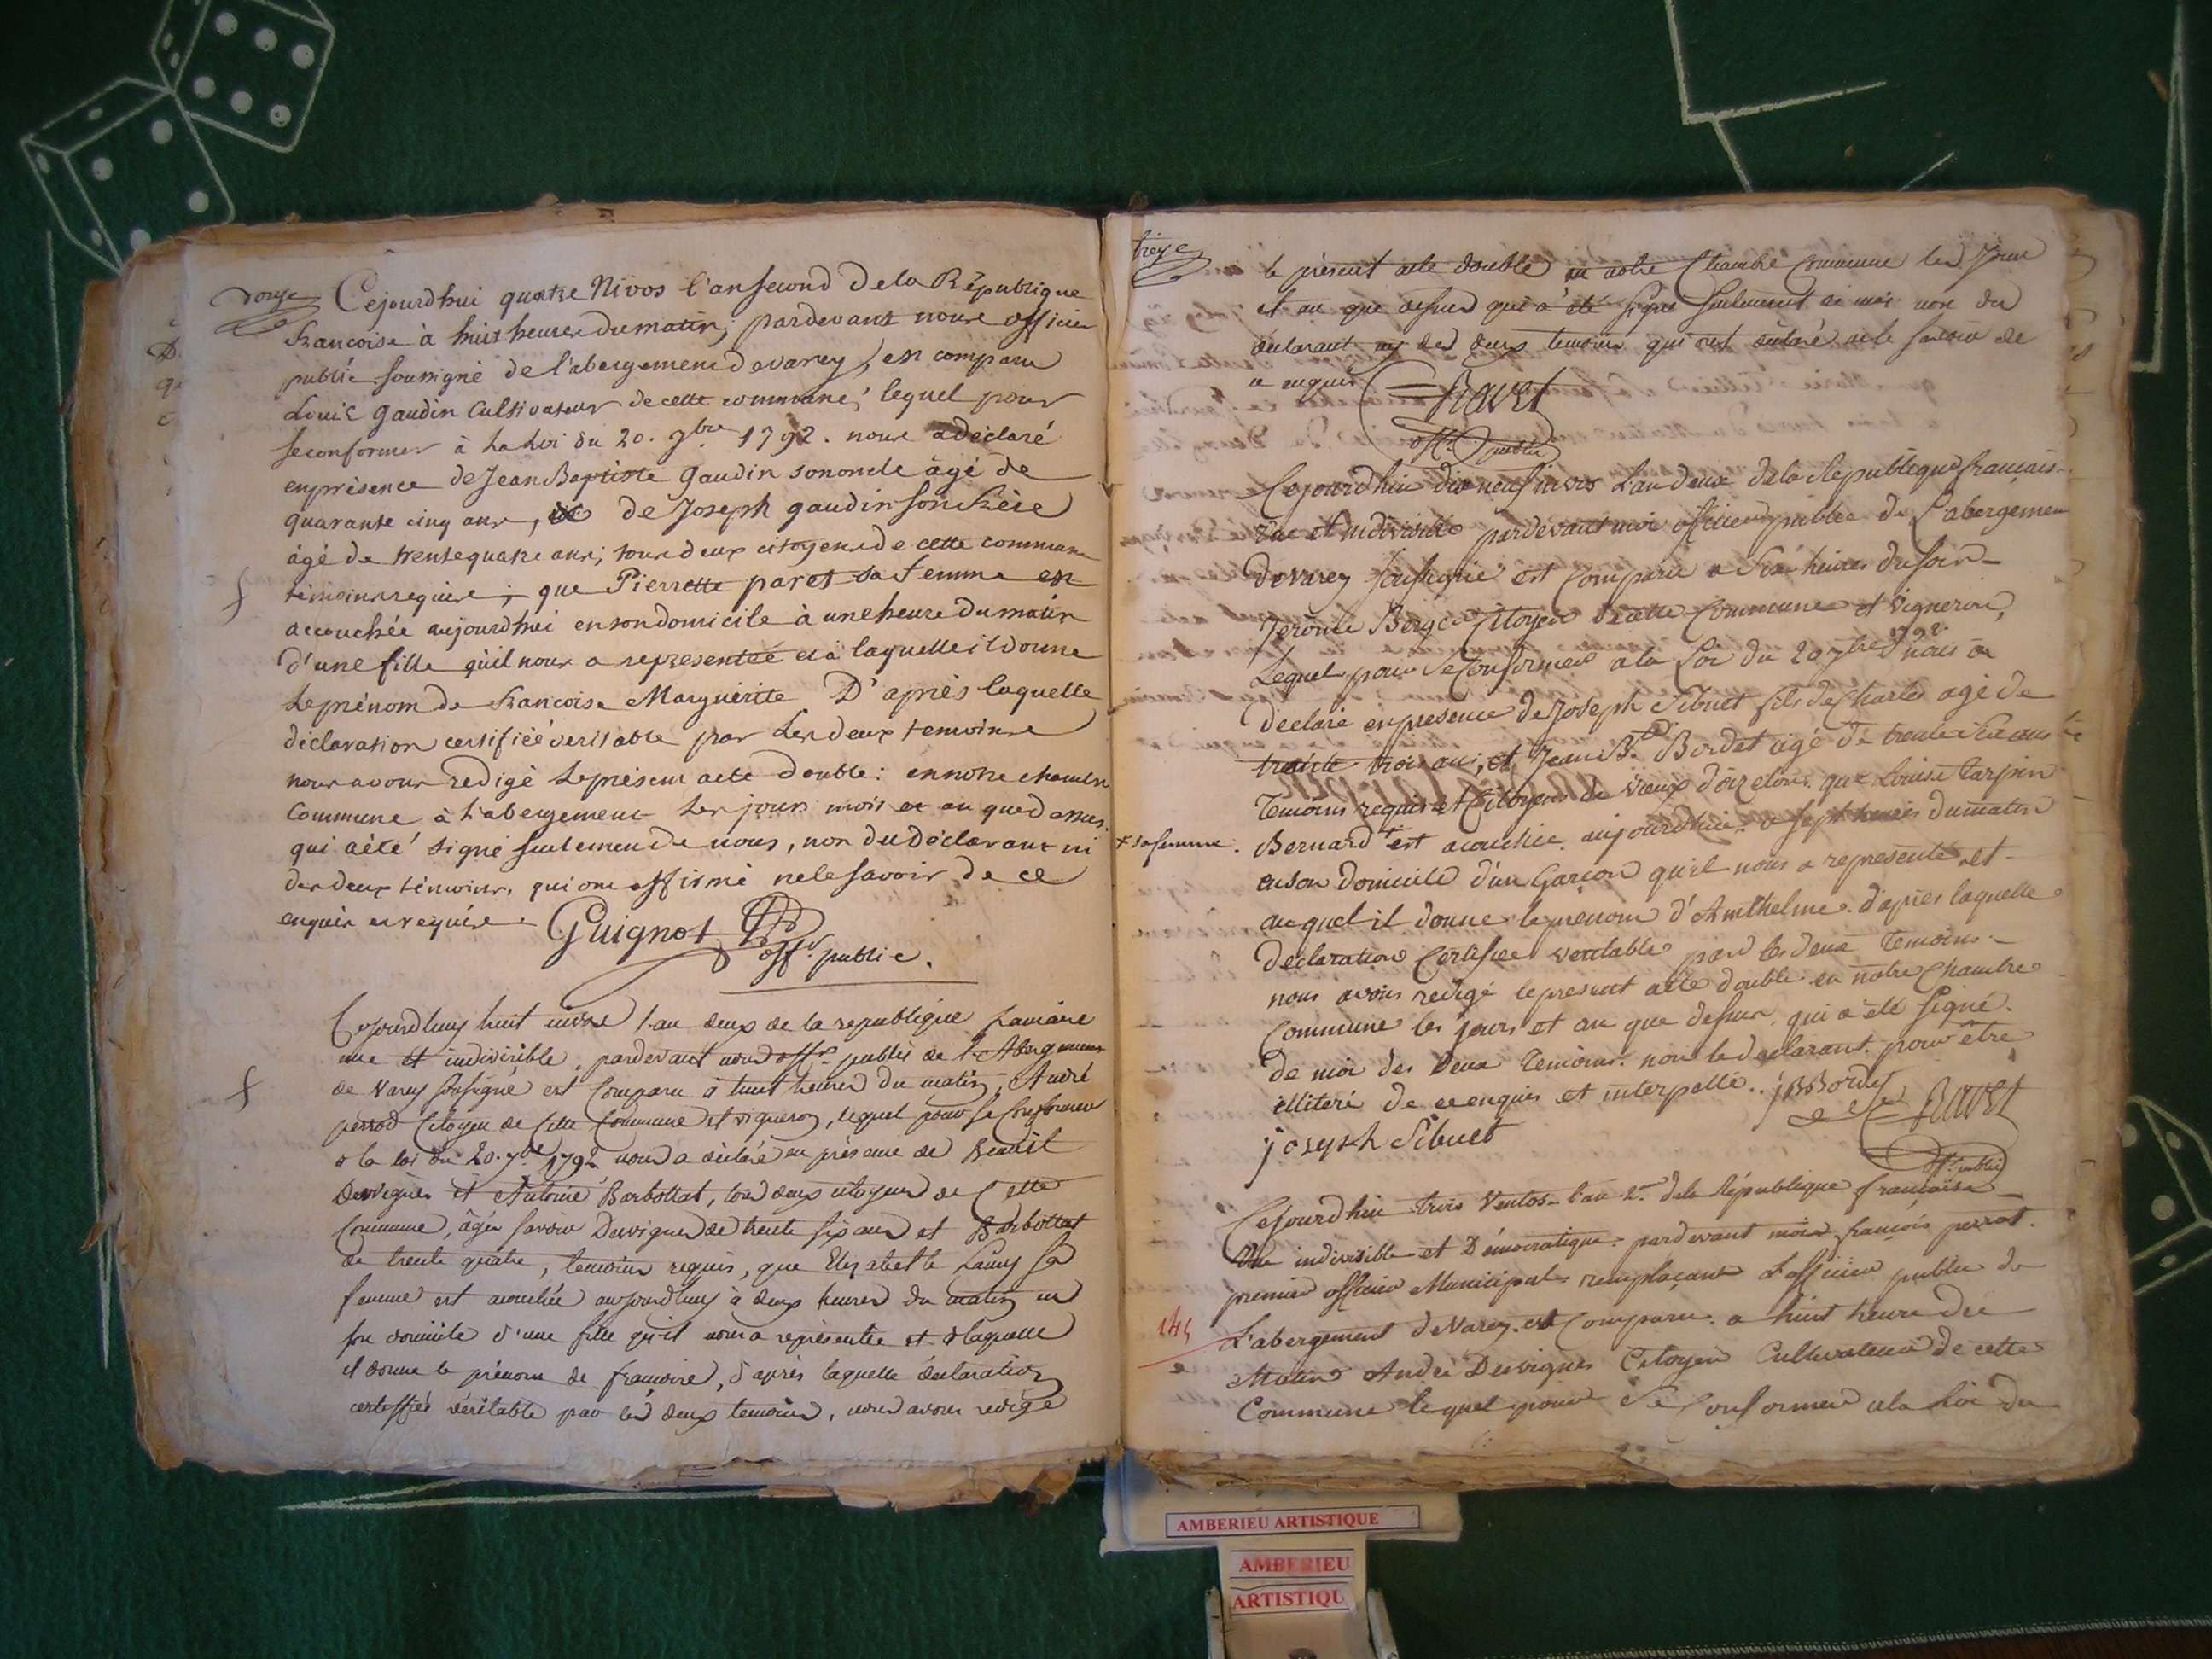 douze
Cejourdhui quatre Nivos l'an second de la République
francoise à huit heures du matin, pardevant nous officier
public soussigné de l'abergement de varey, est comparu
Louis gaudin Cultivateur de cette commune, lequel pour
se conformer à La Loi du 20. 9bre 1792. nous a déclaré
en présence de Jean Baptiste Gaudin son oncle âgé de
quarante cinq ans, et de Joseph gaudin son frère
âgé de trente quatre ans, tous deux citoyens de cette commune
témoins requis; que Pierrette paret sa femme est
accouchée aujourdhui en son domicile à une heure du matin
d'une fille qu'il nous a representée et à laquelle il donne
Le prénom de francoise Margueritte D'après laquelle
déclaration certifiée veritable par Les deux temoins
nous avons redigé Le présent acte double: en notre chambre
Commune à L'abergement Les jours mois et an que dessus.
qui a été signé seulement de nous, non du Déclarant ni
des deux témoins, qui ont affirmé ne le savoir de ce
enquis et requis. Guignot
offr. public.
Cejourdhuy huit nivos l'an deux de la republique francaise
une et indivisible, pardevant nous offr. public de l'Abergement
de Varey soussigné est Comparu à huit heures du matin, André
perrod Citoyen de Cette Commune et vigneron, lequel pour se Conformer
a la loi du 20. 7bre 1792 nous a déclaré en présence de Benoit
Dervignes et Antoine Barbollat, tous deux citoyens de Cette
Commune, âgés savoir Dervignes de trente six ans et Barbollat
de trente quatre, temoins requis, que Elizabeth Lamy sa
femme est accouchée aujourdhuy à deux heures du matin en
son domicile d'une fille qu'il nous a représentée et a laquelle
il donne le prénom de francoise, d'après laquelle déclaration
certiffiée véritable par les deux temoins, nous avons redigé
treze
le présent acte double en notre Chambre Commune les Jour
et an que dessus qui a été signé seulement de moi non du
déclarant ny des deux temoins qui ont déclaré ne le savoir de
ce enquis Ravet
offr. public
Cejourdhui dix neuf nivos L'an deux de la Republique francais
une et indivisible pardevant moi officier public de L'abergement
de Varey soussigné est Comparu a six heures du soir
Jérôme Berger Citoyen de cette Commune et Vigneron,
Lequel pour se Conformer a la Loi du 20 7bre 1792 nous a
déclaré en presence de Joseph Sibuet fils de Charles agé de
trente trois ans, et Jean Bte. Bordet agé de trente six ans
Temoins requis et Citoyens du vieux d'izelons. que Louise Tarpin
* sa femme.
Bernard + est acouchée aujourdhui a sept heures du matin
en son domicile d'un Garçon qu'il nous a representé et
auquel il donne le prenom d'Anthelme. d'après laquelle
declaration Certifiée veritable par les deux Temoins
nous avons redigé le present acte double en notre Chambre
Commune les jours et an que dessus, qui a été signé.
de moi des Deux Temoins. non le declarant. pour être
illiteré de ce enquis et interpellé. J B Bordet
Ravet
joseph Sibuet
off. public
Cejourdhui trois Ventos. l'an 2.me de la République francaise
Une indivisible et Démocratique. pardevant moi françois perrot.
premier officier Municipal remplaçant L'officier public de
L'abergement de Varey. est Comparu. a huit heure du
Matin André Dervignes Citoyen Cultivateur de cette
Commune lequel pour se Conformer a la Loi du
AMBERIEU ARTISTIQUE
AMBERIEU
ARTISTIQU